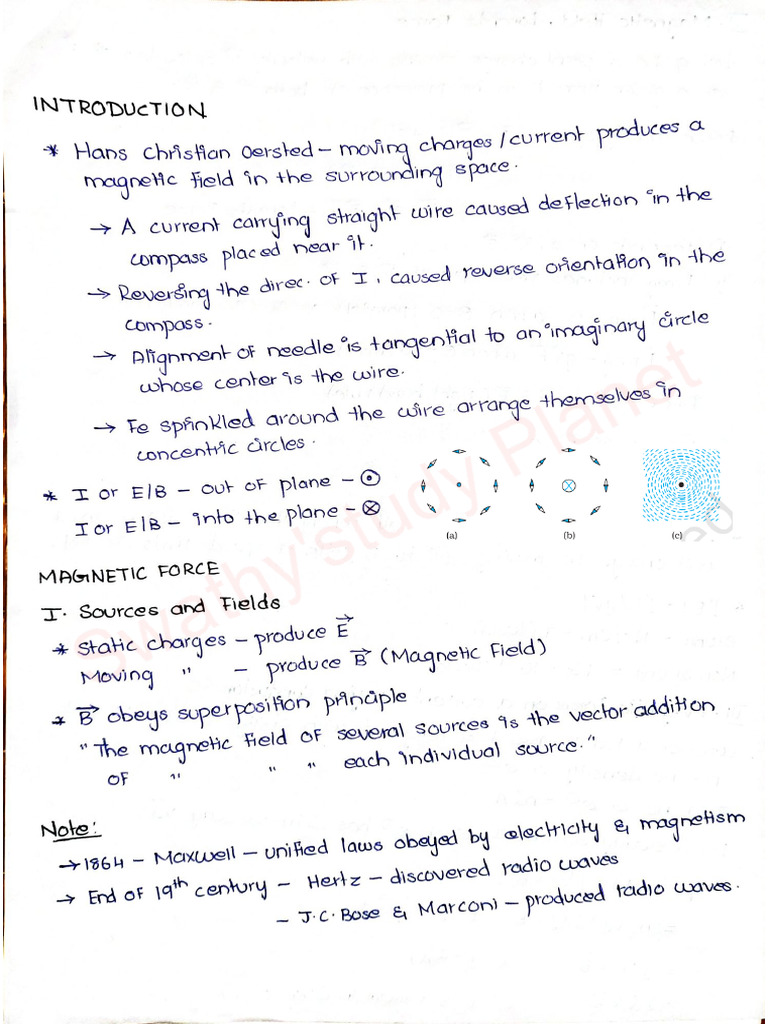 INTRODUCTION
* Hans Christian Oersted – moving charges / current produces a
magnetic field in the surrounding space.
→ A current carrying straight wire caused deflection in the
compass placed near it.
→ Reversing the direc. of I, caused reverse orientation in the
compass.
→ Alignment of needle is tangential to an imaginary circle
whose center is the wire.
→ Fe sprinkled around the wire arrange themselves in
concentric circles.
* I or E/B – out of plane – ⊙
I or E/B – into the plane – ⊗
(a) (b) (c)
MAGNETIC FORCE
I. Sources and Fields
* Static charges – produce E⃗
Moving " – produce B⃗ (Magnetic Field)
* B⃗ obeys superposition principle
"The magnetic field of several sources is the vector addition
of " " " each individual source."
Note:
→ 1864 – Maxwell – unified laws obeyed by electricity & magnetism
→ End of 19th century – Hertz – discovered radio waves
– J.C. Bose & Marconi – produced radio waves.
Swathy's study Planet